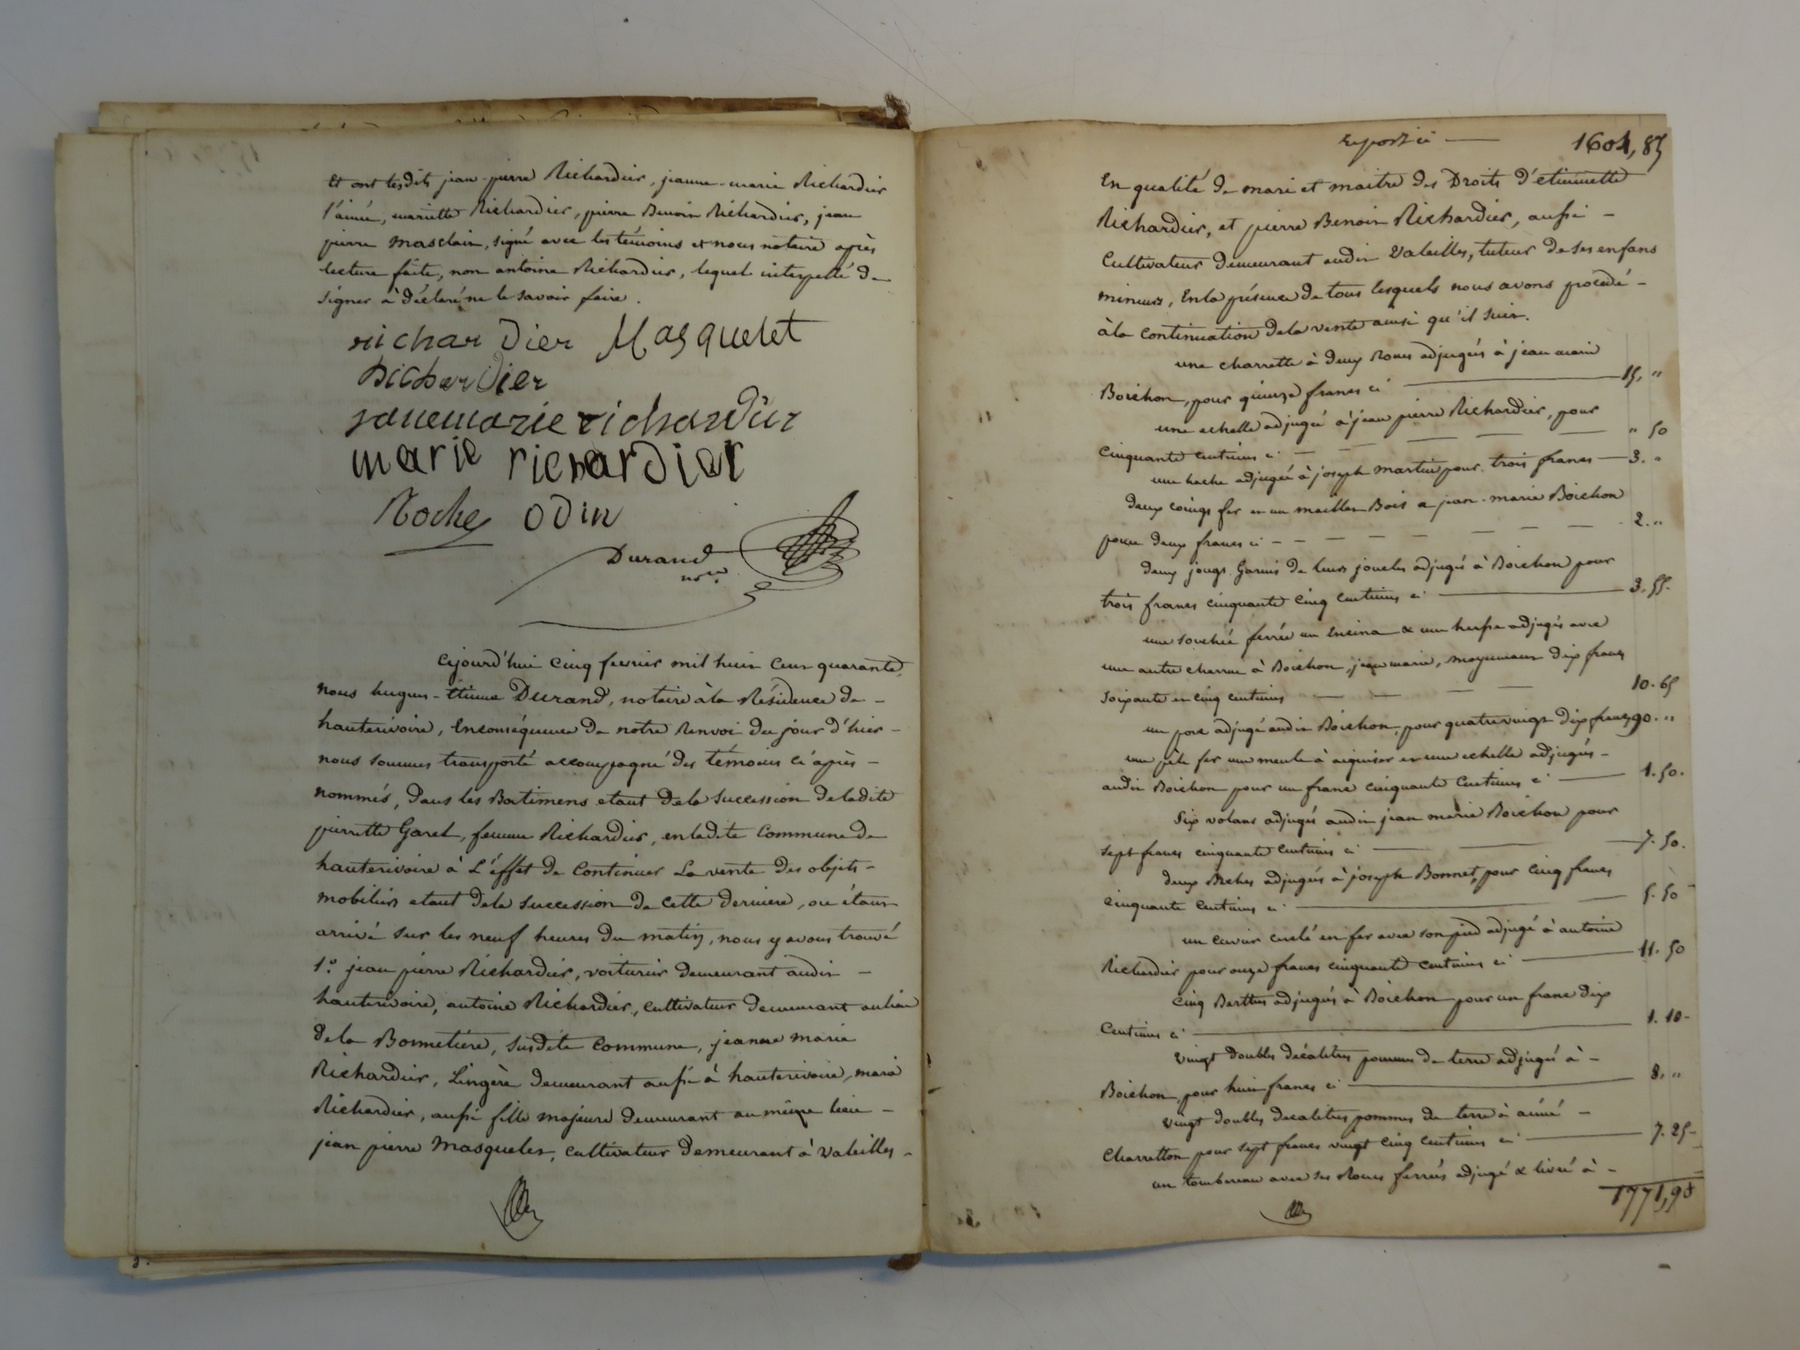 Et ont lesdits jean-pierre Richardier, jeanne-marie Richardier
l'ainée, mariette Richardier, pierre Benoit Richardier, jean
pierre Masclair, signé avec les témoins et nous notaire après
lecture faite, non antoine Richardier, lequel interpellé de
signer a déclaré ne le savoir faire.
richardier Masquelet
Richardier
janemarie richardier
marie richardier
Roche odin
Durand
nre
Cejourd'hui cinq fevrier mil huit cent quarante,
nous hugues-étienne Durand, notaire à la Résidence de -
hauterivoire, En conséquence de notre Renvoi du jour d'hier -
nous sommes transporté accompagné des témoins ci après -
nommés, dans les Batimens etant de la succession de ladite
pierrette Garel, femme Richardier, en ladite commune de
hauterivoire à L'éffet de Continuer La vente des objets -
mobiliers etant dela succession de cette derniere, ou étant
arrivé sur les neuf heures du matin, nous y avons trouvé
1.° jean pierre Richardier, voiturier demeurant audit -
hauterivoire, antoine Richardier, cultivateur demeurant au lieu
de la Bonnetière, susdite commune, jeanne marie
Richardier, Lingère demeurant aussi à hauterivoire, marie
Richardier, aussi fille majeure demeurant au même lieu -
jean pierre Masquelet, cultivateur demeurant à valeilles -
report ci — 1604,85
En qualité de mari et maitre des Droits d'etiennette
Richardier, et pierre Benoit Richardier, aussi -
Cultivateur demeurant audit Valeilles, tuteur de ses enfans
mineurs, En la présence de tous lesquels nous avons procédé -
à la continuation de la vente ainsi qu'il suit.
une charrette à deux Roues adjugée à jean marie
Boichon, pour quinze francs ci — 15, "
une echelle adjugée à jean pierre Richardier, pour
cinquante centimes ci — " 50
une hache adjugée à joseph martin pour trois francs — 3. "
deux coings fer et un maillet Bois a jean-marie Boichon
pour deux francs ci — 2. "
deux jougs Garnis de leurs joucles adjugés à Boichon pour
trois francs cinquante cinq centimes ci — 3. 55.
une ferrée un & une herse adjugés avec
une autre charrue à Boichon, jean marie, moyennant dix francs
soixante et cinq centimes — 10. 65
un porc adjugé audit Boichon, pour quatre vingt dix francs 90. "
une fer une meule à aiguiser et une echelle adjugés -
audit Boichon pour un franc cinquante Centimes ci — 1. 50.
Six volans adjugés audit jean marie Boichon pour
sept francs cinquante centimes ci — 7. 50.
deux Biches adjugées à joseph Bonnet, pour cinq francs
cinquante centimes ci — 5. 50
un cuvier cerclé en fer avec son pied adjugé à antoine
Richardier pour onze francs cinquante centimes ci — 11. 50
cinq Berthes adjugées à Boichon pour un franc dix
Centimes ci — 1. 10 -
vingt doubles décalitres pommes de terre adjugés à -
Boichon, pour huit francs ci — 8. "
vingt doubles decalitres pommes de terre à aimé -
Charretton pour sept francs vingt cinq centimes ci — 7. 25 -
un tombereau avec ses Roues ferrées adjugé & livré à -
1771,90